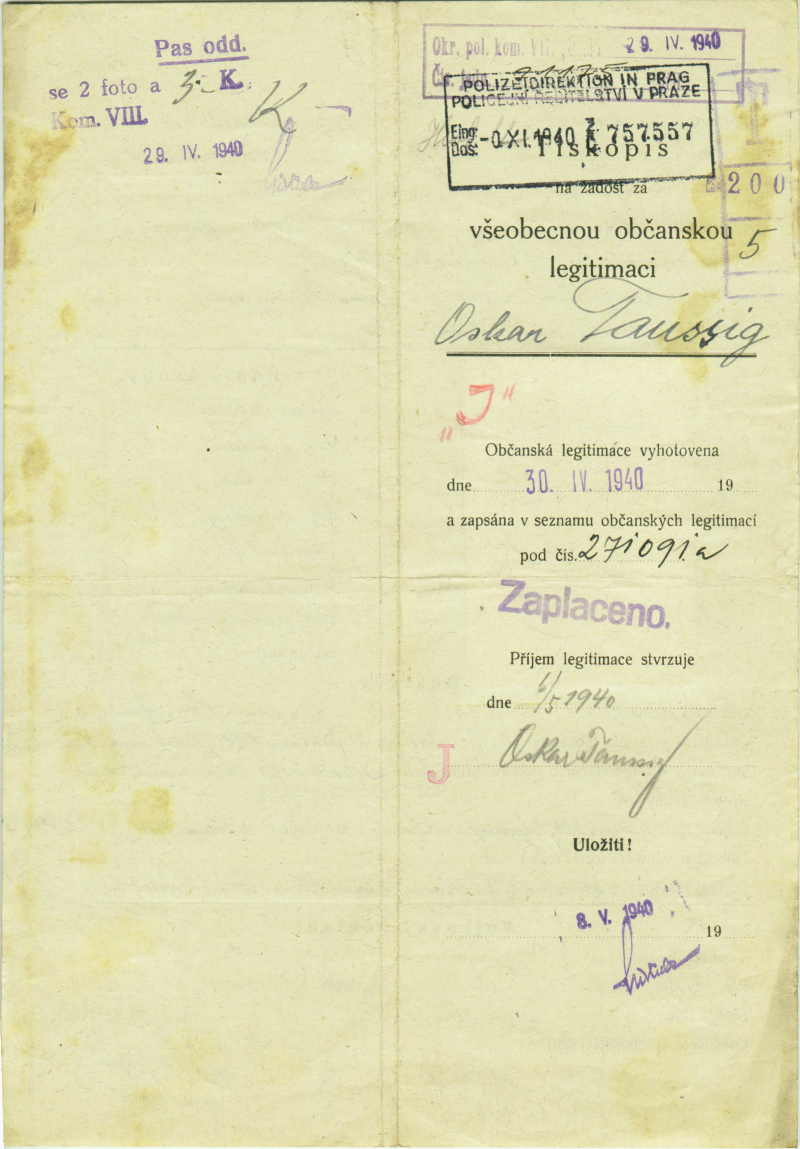 Pas odd.
se 2 foto a 3·- K.
Kom. VIII.
29. IV. 1940
Okr. pol. kom. VII
29. IV. 1940
POLIZEIDIREKTION IN PRAG
POLICEJNÍ ŘEDITELSTVÍ V PRAZE
Eing.
Doš. XI. 1940 757557
Tiskopis
na žádost za
200
všeobecnou občanskou
5
legitimaci
Oskar Taussig
"J"
Občanská legitimace vyhotovena
dne 30. IV. 1940 19
a zapsána v seznamu občanských legitimací
pod čís.
Zaplaceno.
Příjem legitimace stvrzuje
dne 6/5 1940
Oskar Taussig
J
Uložiti!
8. V. 1940
19